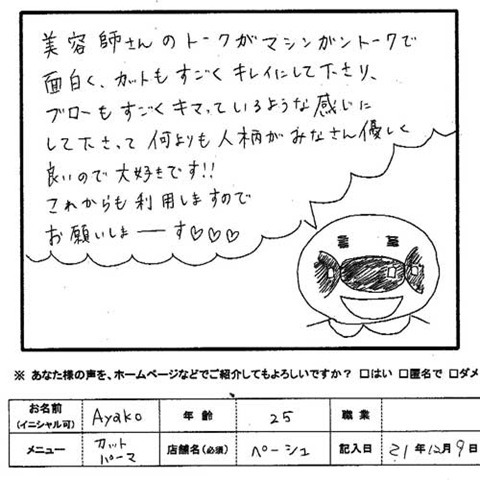 美容師さんのトークがマシンガントークで
面白く、カットもすごくキレイにして下さり、
ブローもすごくキマっているような感じに
して下さって何よりも人柄がみなさん優しく
良いので大好きです!!
これからも利用しますので
お願いしまーーす♡♡♡
※ あなた様の声を、ホームページなどでご紹介してもよろしいですか？ □はい □匿名で □ダメ
お名前 (イニシャル可) Ayako 年齢 25 職業
メニュー カット パーマ 店舗名(必須) ペーシュ 記入日 21年12月9日